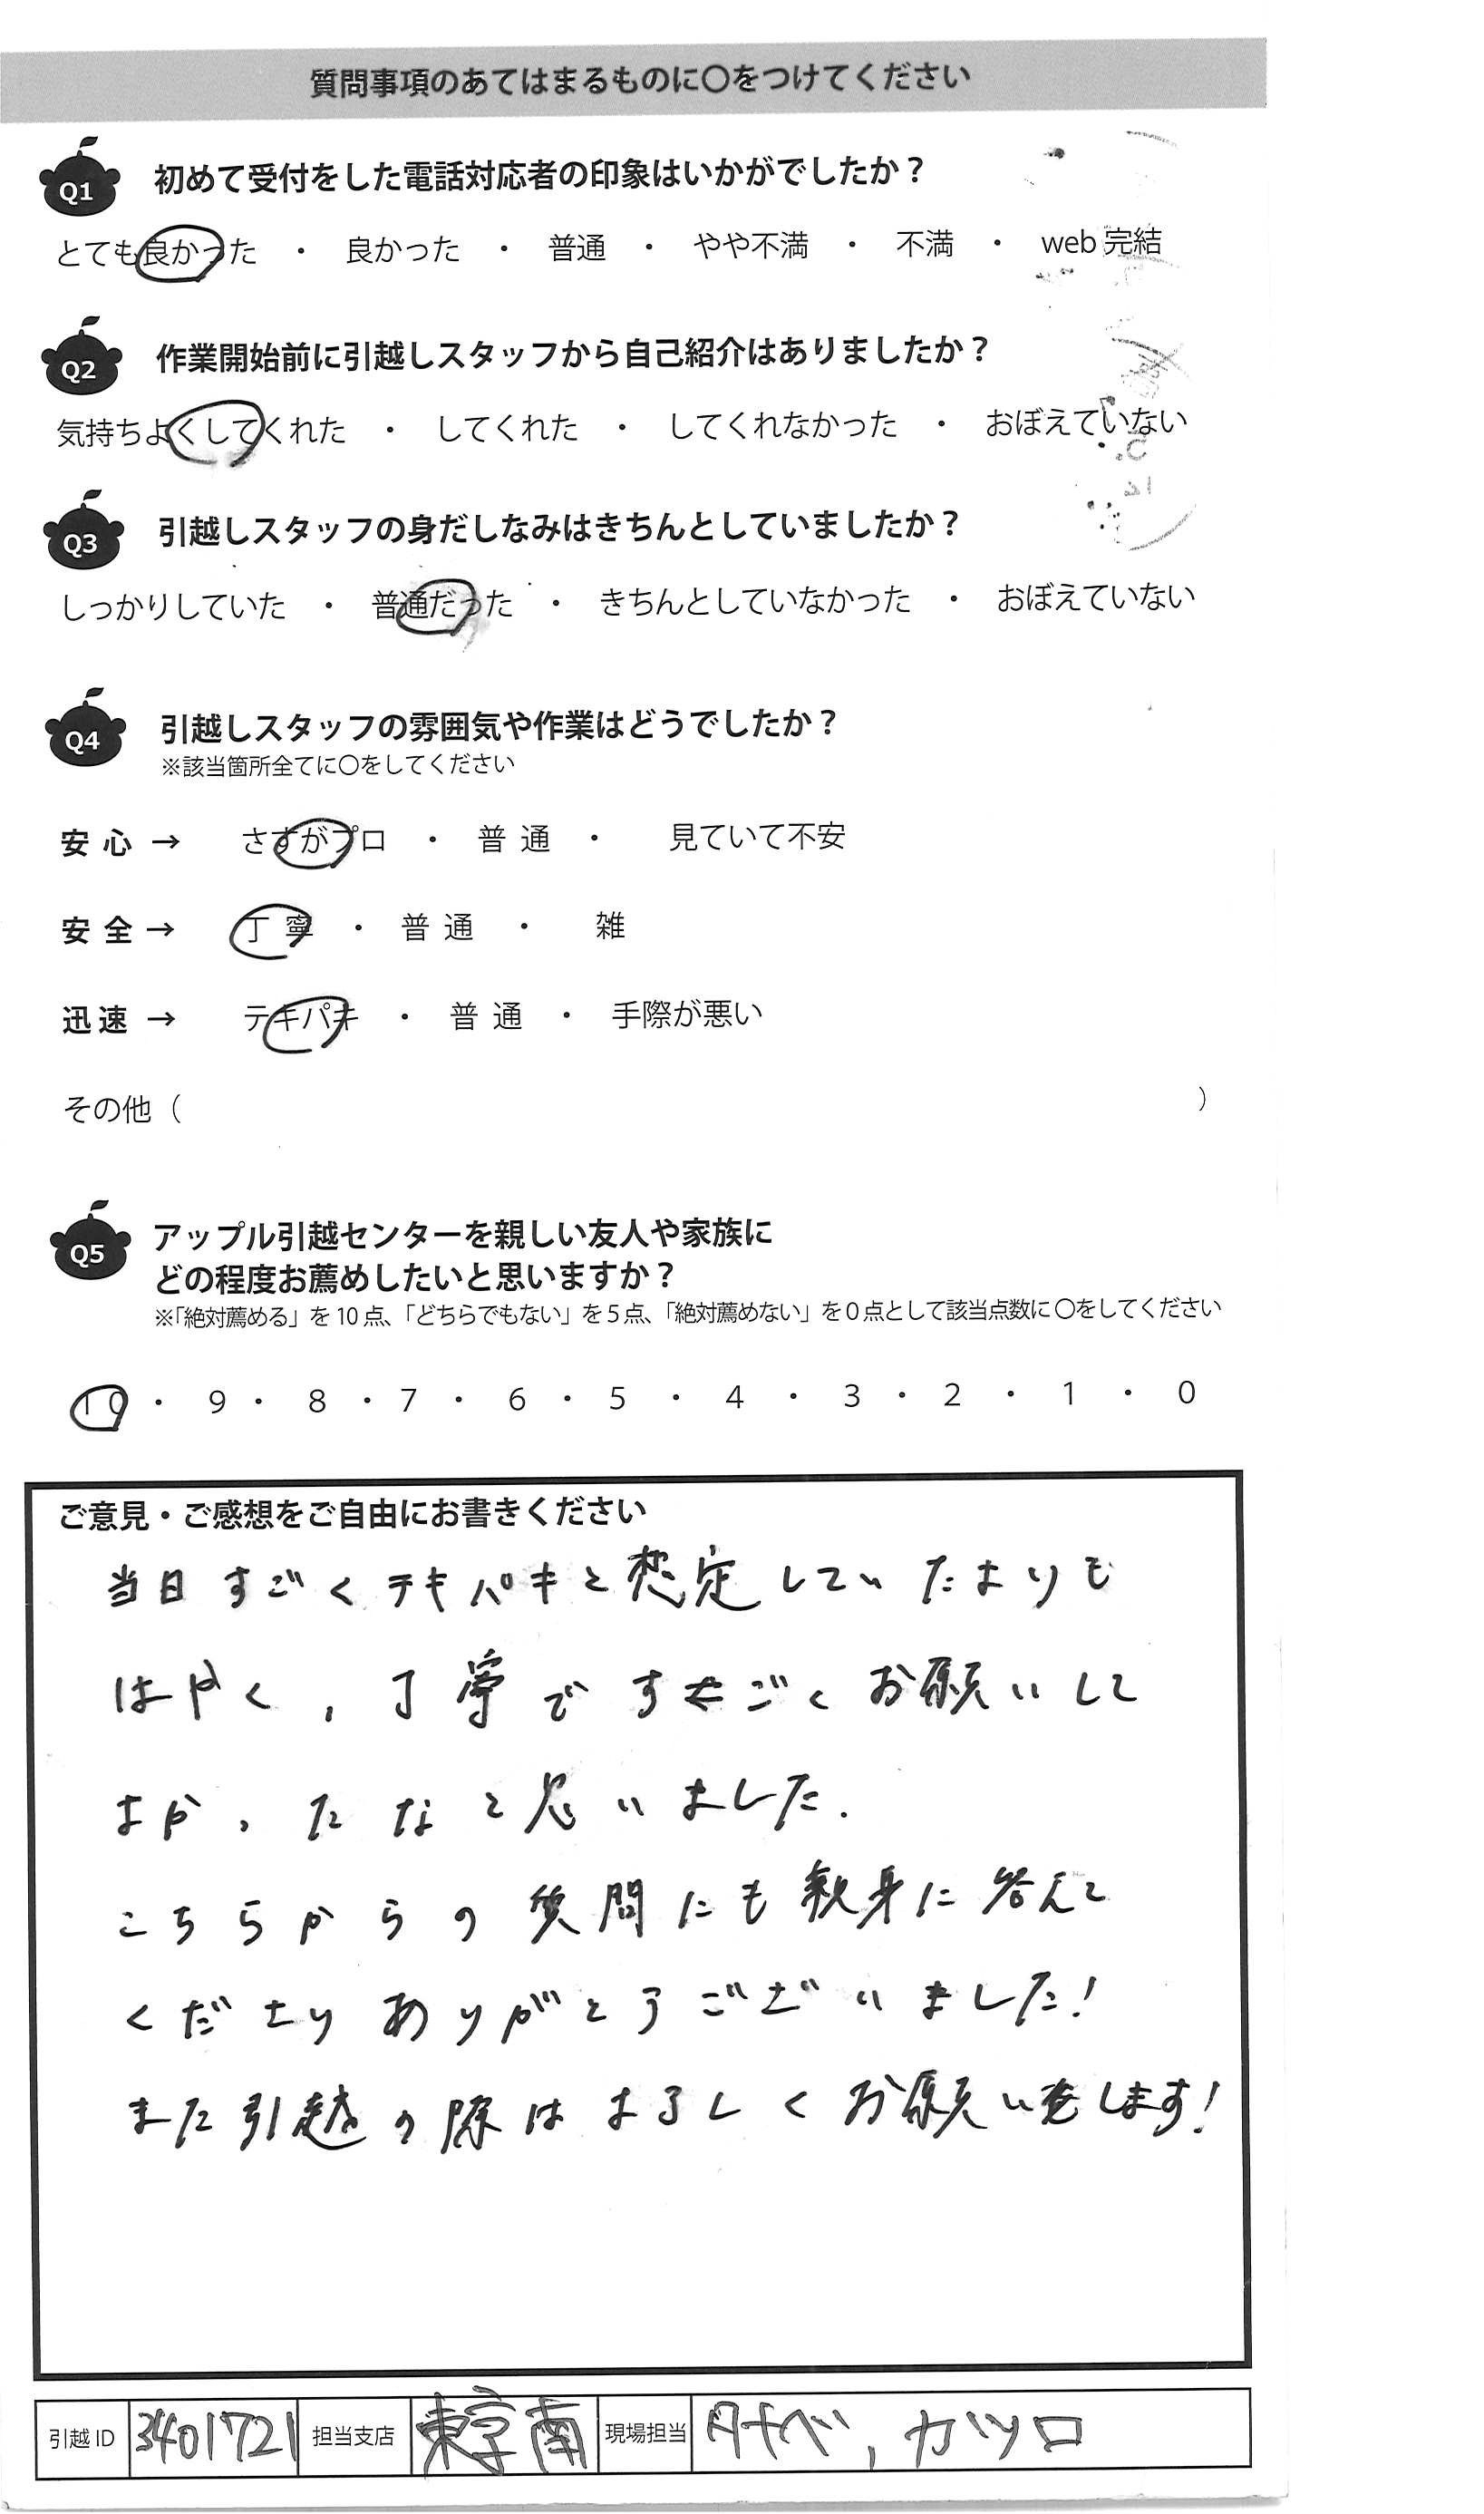 質問事項のあてはまるものに〇をつけてください
Q1 初めて受付をした電話対応者の印象はいかがでしたか？
とても良かった ・ 良かった ・ 普通 ・ やや不満 ・ 不満 ・ web 完結
Q2 作業開始前に引越しスタッフから自己紹介はありましたか？
気持ちよくしてくれた ・ してくれた ・ してくれなかった ・ おぼえていない
Q3 引越しスタッフの身だしなみはきちんとしていましたか？
しっかりしていた ・ 普通だった ・ きちんとしていなかった ・ おぼえていない
Q4 引越しスタッフの雰囲気や作業はどうでしたか？
※該当箇所全てに〇をしてください
安心 → さすがプロ ・ 普通 ・ 見ていて不安
安全 → 丁寧 ・ 普通 ・ 雑
迅速 → テキパキ ・ 普通 ・ 手際が悪い
その他（ ）
Q5 アップル引越センターを親しい友人や家族に
どの程度お薦めしたいと思いますか？
※「絶対薦める」を10点、「どちらでもない」を5点、「絶対薦めない」を0点として該当点数に〇をしてください
10 ・ 9 ・ 8 ・ 7 ・ 6 ・ 5 ・ 4 ・ 3 ・ 2 ・ 1 ・ 0
ご意見・ご感想をご自由にお書きください
当日すごくテキパキと想定していたよりも
はやく、丁寧ですごくお願いして
よかったなと思いました.
こちらからの質問にも親身に答えて
くださりありがとうございました!
また引越の際はよろしくお願い致します!
引越ID 3401721 担当支店 東京南 現場担当 タナベ, カツロ